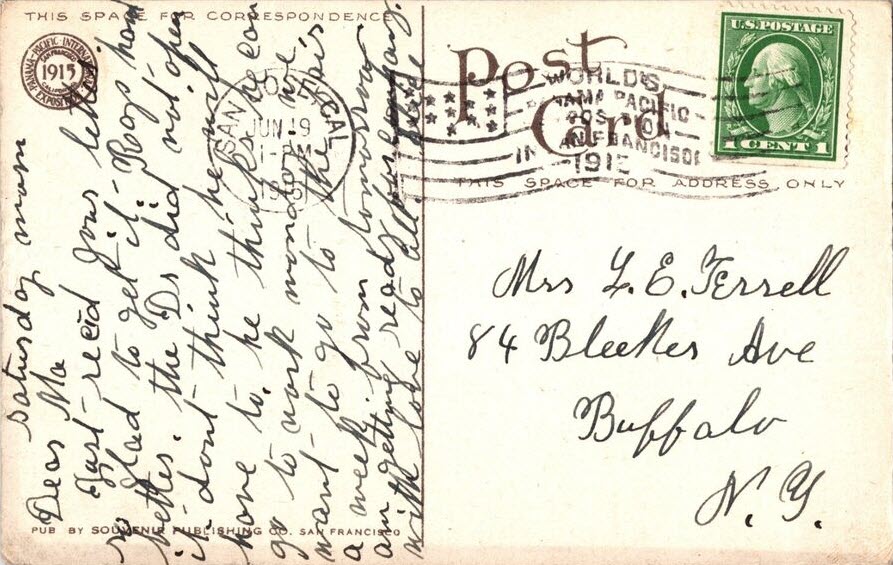 THIS SPACE FOR CORRESPONDENCE
PANAMA-PACIFIC-INTERNATIONAL
1915
EXPOSITION
Saturday morn
Dear Ma
Just rec'd your letter
so glad to get it - Roys hand
better. the Drs did not open
it - dont think he will
have to. he thinks he can
go to work monday, we
want to go to the Fair
a week from tomorrow
am getting ready
with love to all
PUB BY SOUVENIR PUBLISHING CO. SAN FRANCISCO
Post
Card
SAN
CAL
JUN 19
1-PM
1915
WORLD'S
PANAMA PACIFIC
EXPOSITION
IN SAN FRANCISCO
1915
U.S. POSTAGE
1 CENT 1
THIS SPACE FOR ADDRESS ONLY
Mrs L. E. Ferrell
84 Bleeker Ave
Buffalo
N. Y.